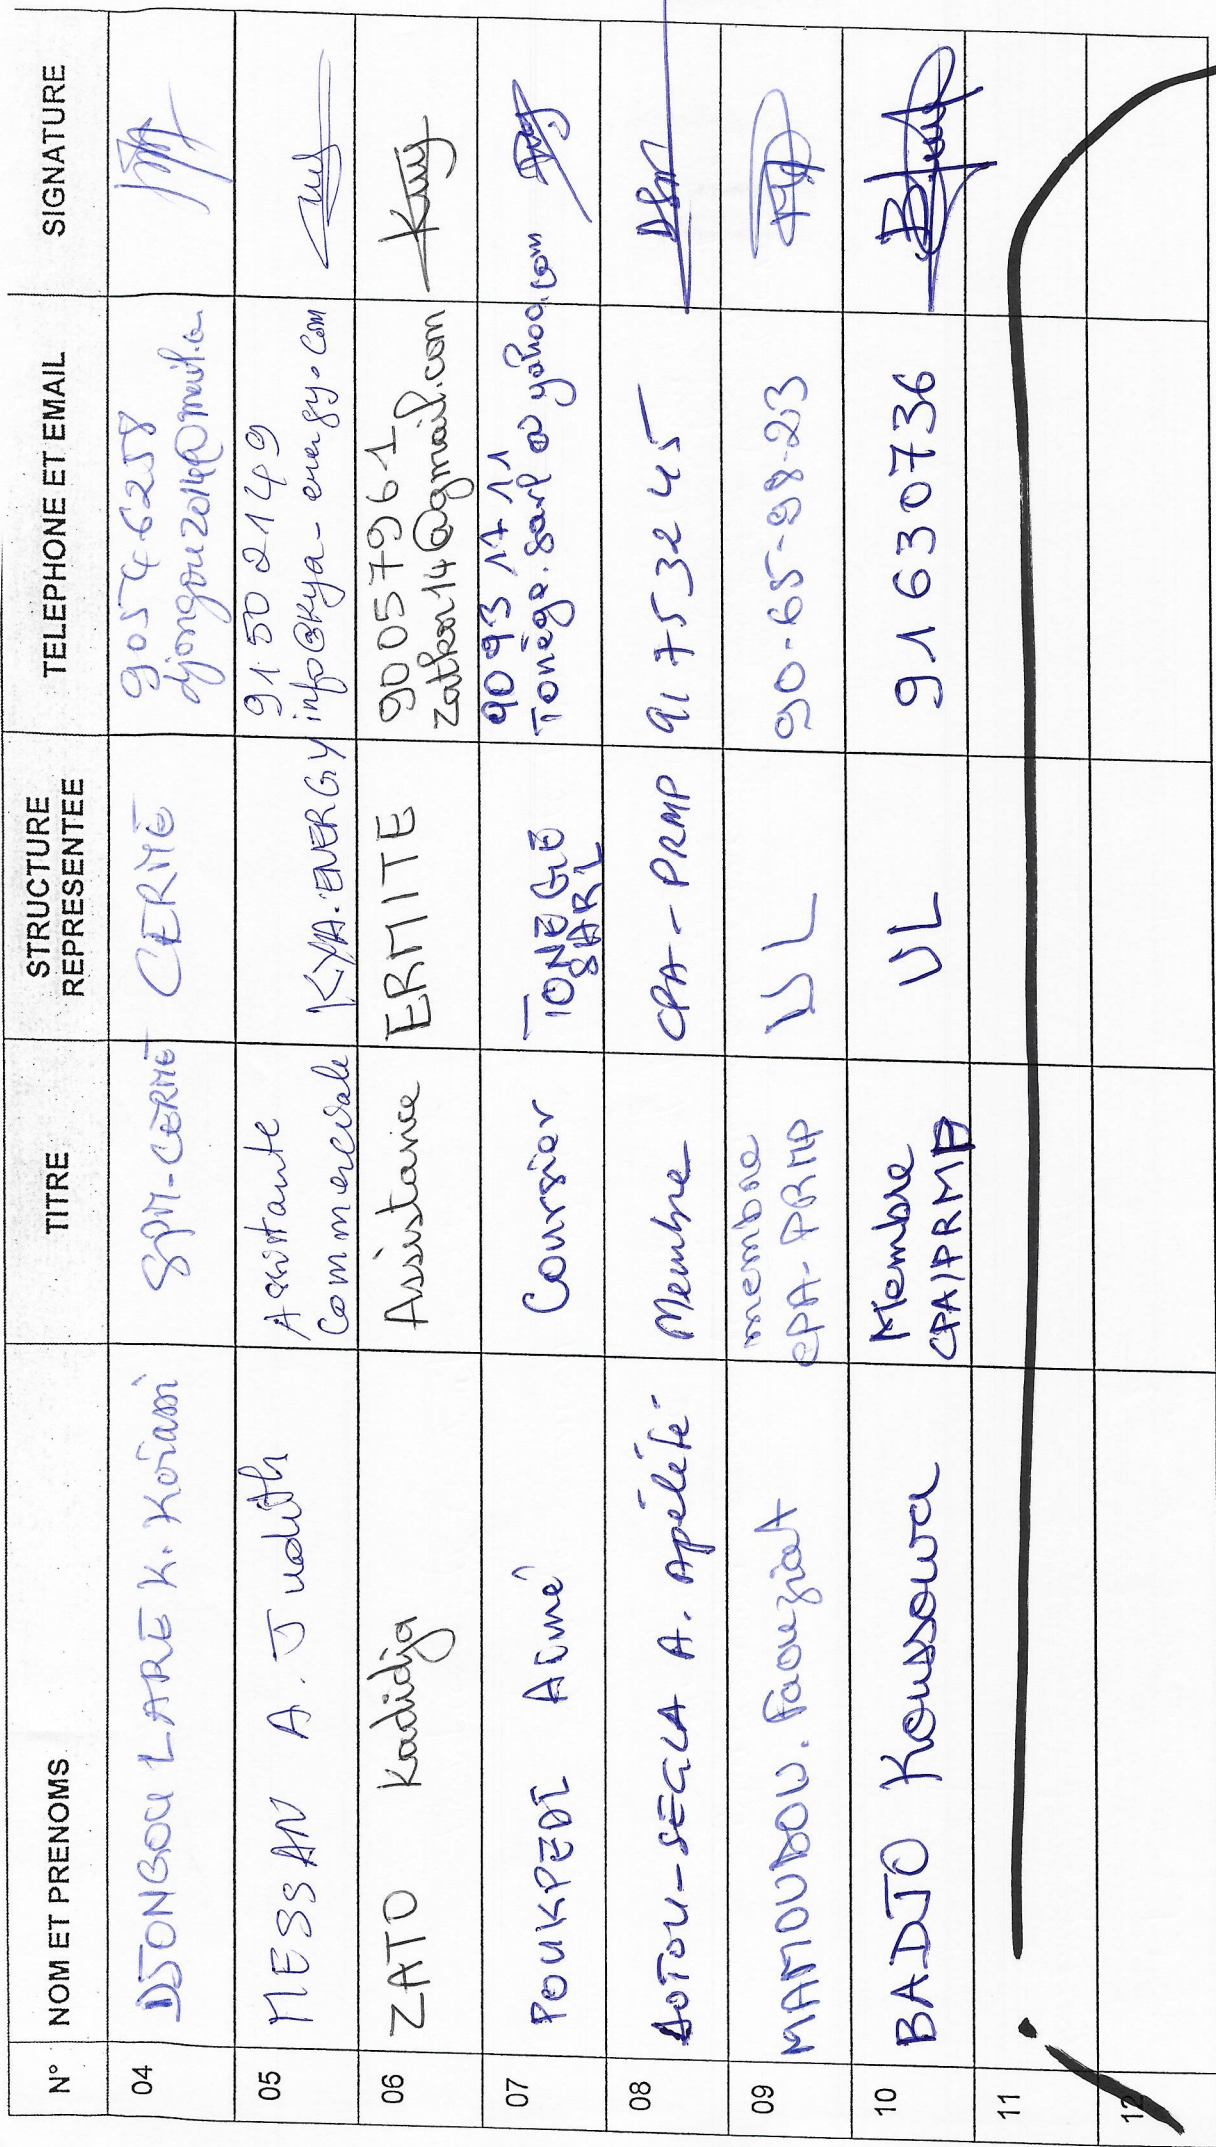 N° NOM ET PRENOMS TITRE STRUCTURE REPRESENTEE TELEPHONE ET EMAIL SIGNATURE
04 DJONGOU LARE K. SPM-CERME CERME 90546258
05 MESSAN A. Judith Assistante Commerciale KYA-ENERGY 91502149
info@kya-energy.com
06 ZATO Kadidja Assistance ERMITE 90057961
zatkon14@gmail.com
07 POUKPEDI Aimé Coursier TONEGE SARL 90931711
Tonege.sarl@yahoo.com
08 SOTOU-SEGLA A. Apélété Membre CPA-PRMP 91753245
09 MAMOUDOU. Faouziat membre CPA-PRMP UL 90-65-98-23
10 BADJO Koussowa Membre CPA/PRMP UL 91630736
11
12